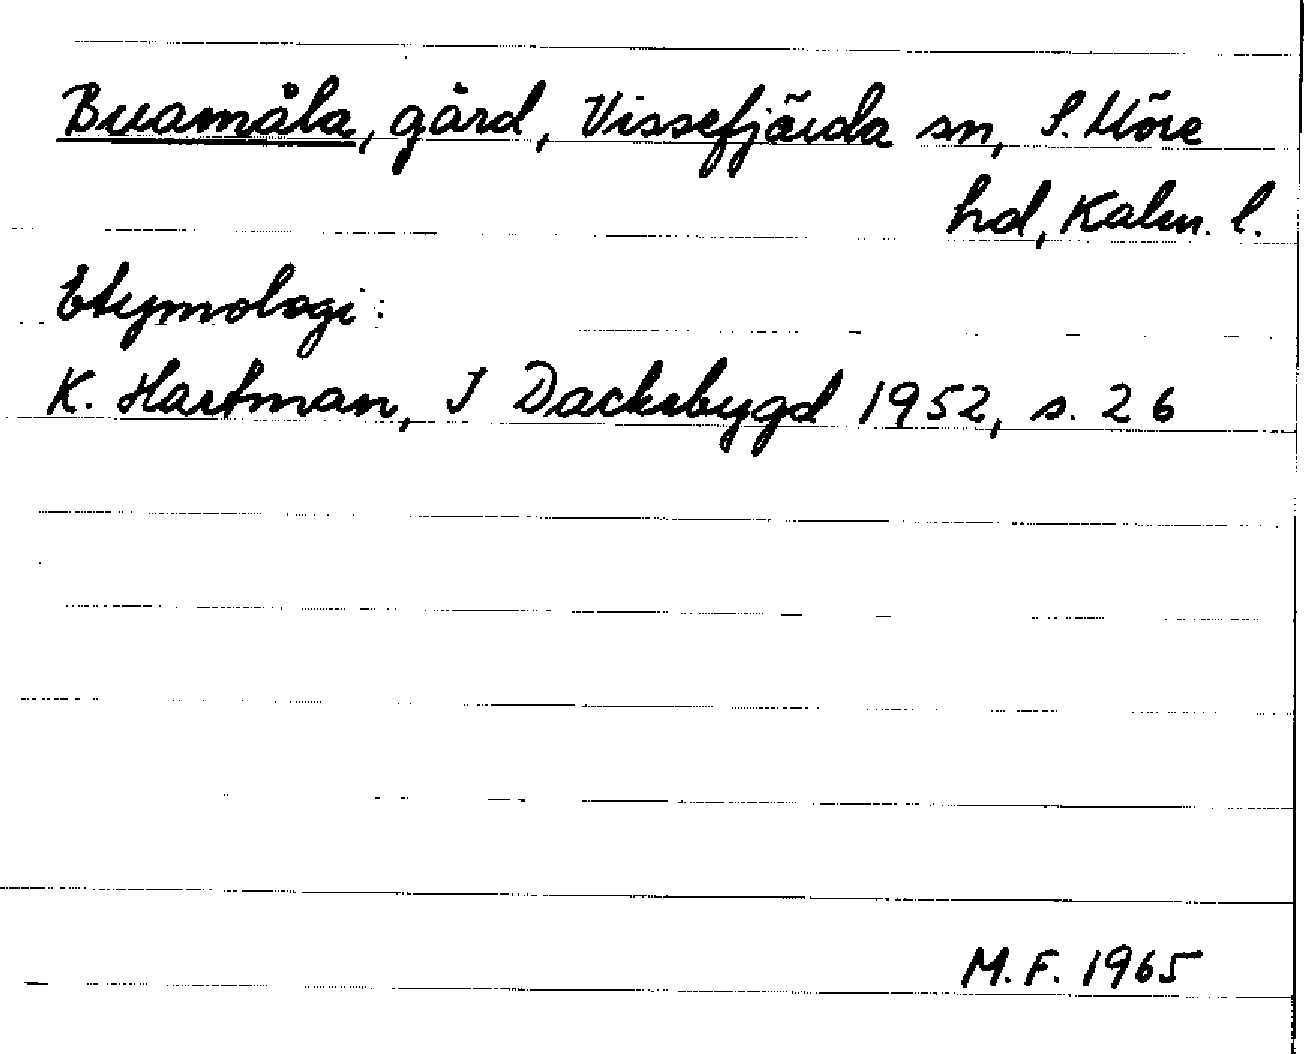 Buamåla, gård, Vissefjärda sn, S. Möre
hd, Kalm. l.
Etymologi:
K. Hartman, I Dackebygd 1952, s. 26
M.F. 1965